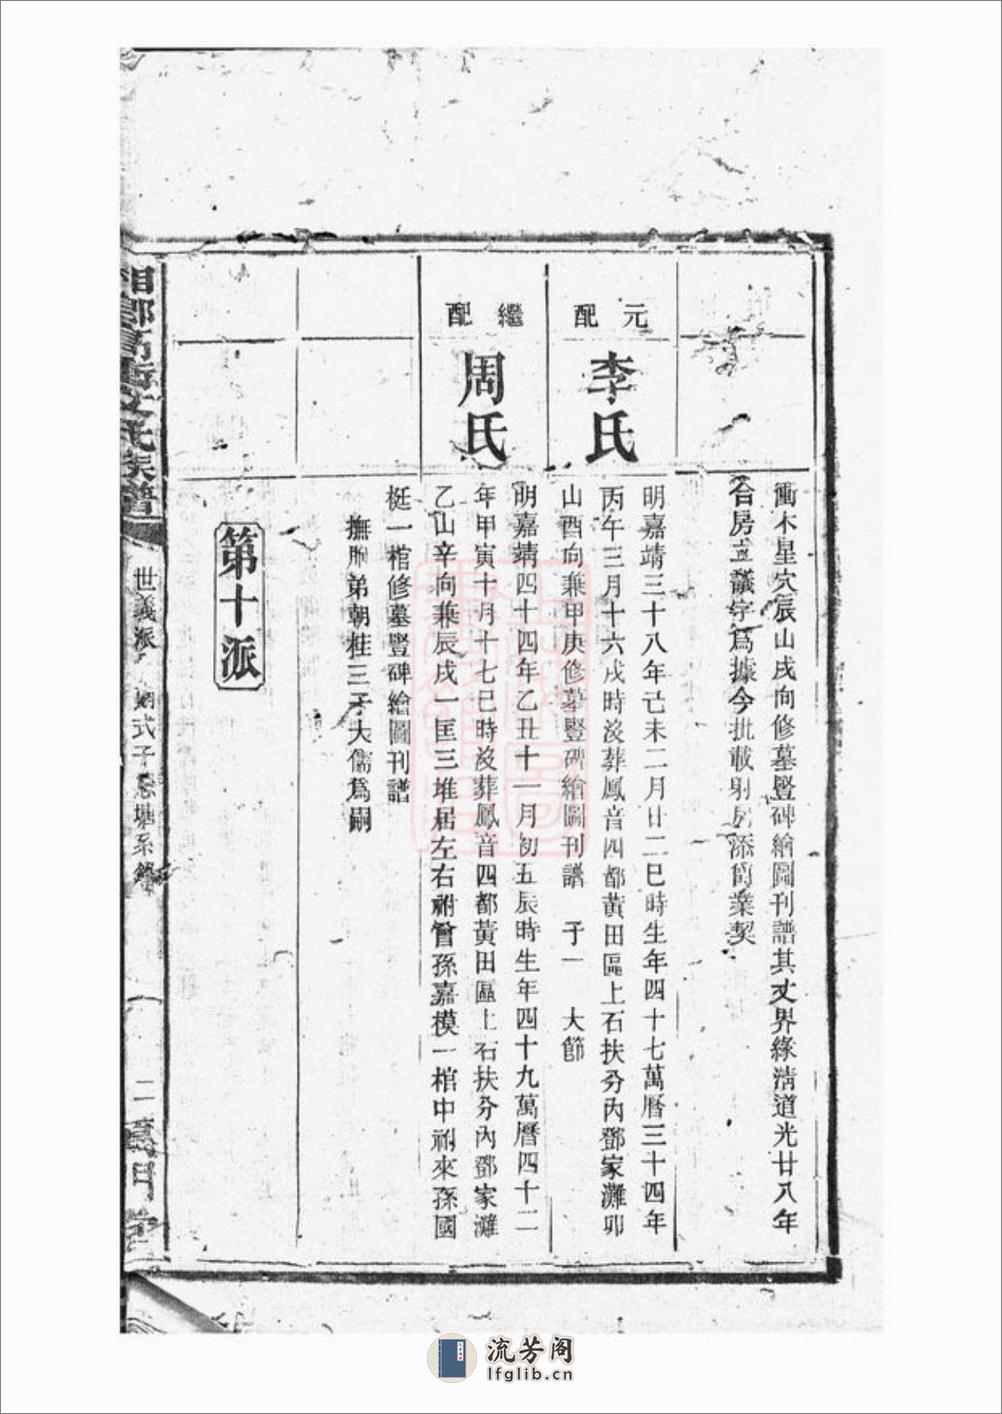 衝木星穴辰山戌向修墓豎碑繪圖刊譜其丈界緣淸道光廿八年
合房立議字爲據今批載射房添簡業契
元配
李氏
明嘉靖三十八年己未二月廿二巳時生年四十七萬曆三十四年
丙午三月十六戌時沒葬鳳音四都黃田區上石扶分內鄧家灘卯
山酉向兼甲庚修墓豎碑繪圖刊譜 子一 大節
繼配
周氏
明嘉靖四十四年乙丑十一月初五辰時生年四十九萬曆四十二
年甲寅十月十七巳時沒葬鳳音四都黃田區上石扶分內鄧家灘
乙山辛向兼辰戌一匡三堆居左右祔曾孫嘉模一棺中祔來孫國
梃一棺修墓豎碑繪圖刊譜
撫胞弟朝桂三子大儒爲嗣
第十派
氏族譜
世義派 式子 塘系
二
流芳阁
lfglib.cn